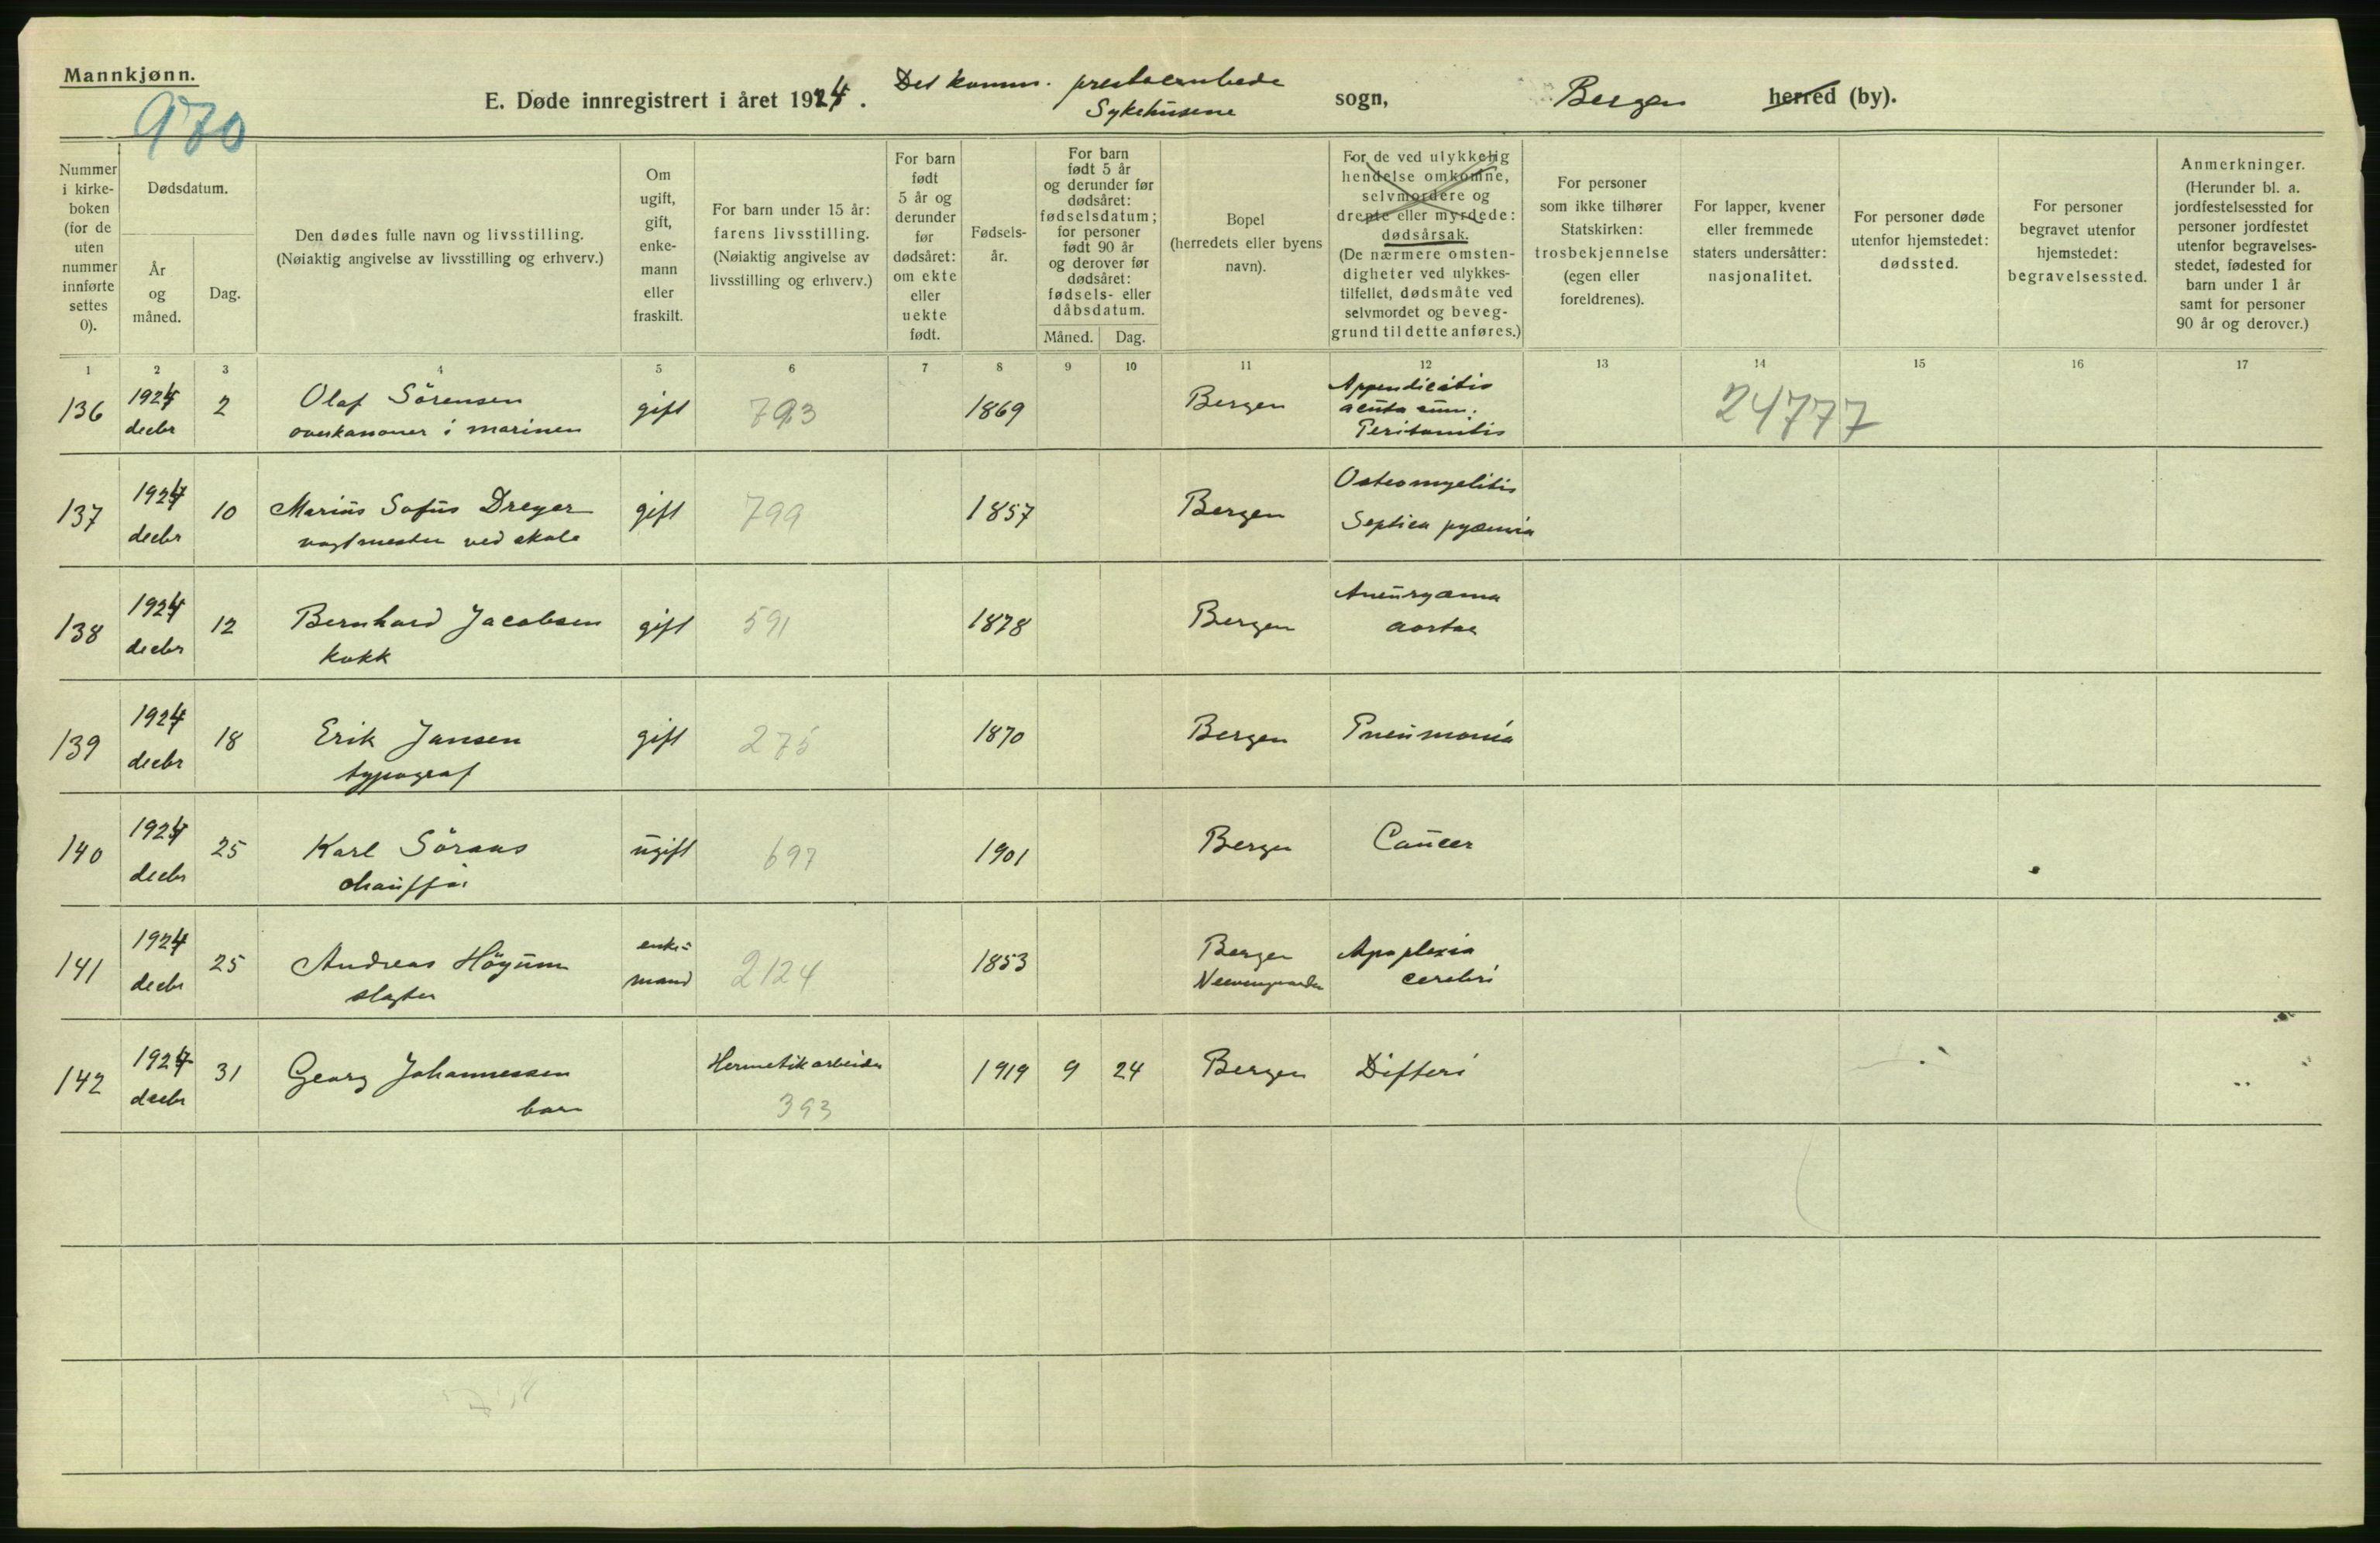 Mannkjønn.
970
E. Døde innregistrert i året 1924.
Det komm. presteembede
Sykehusene
sogn,
Bergen
herred (by).
Nummer
i kirke-
boken
(for de
uten
nummer
innførte
settes
0).
Dødsdatum.
År
og
måned.
Dag.
Den dødes fulle navn og livsstilling.
(Nøiaktig angivelse av livsstilling og erhverv.)
Om
ugift,
gift,
enke-
mann
eller
fraskilt.
For barn under 15 år:
farens livsstilling.
(Nøiaktig angivelse av
livsstilling og erhverv.)
For barn
født
5 år og
derunder
før
dødsåret:
om ekte
eller
uekte
født.
Fødsels-
år.
For barn
født 5 år
og derunder før
dødsåret:
fødselsdatum;
for personer
født 90 år
og derover før
dødsåret:
fødsels- eller
dåbsdatum.
Måned.
Dag.
Bopel
(herredets eller byens
navn).
For de ved ulykkelig
hendelse omkomne,
selvmordere og
drepte eller myrdede:
dødsårsak.
(De nærmere omsten-
digheter ved ulykkes-
tilfellet, dødsmåte ved
selvmordet og beveg-
grund til dette anføres.)
For personer
som ikke tilhører
Statskirken:
trosbekjennelse
(egen eller
foreldrenes).
For lapper, kvener
eller fremmede
staters undersåtter:
nasjonalitet.
For personer døde
utenfor hjemstedet:
dødssted.
For personer
begravet utenfor
hjemstedet:
begravelsessted.
Anmerkninger.
(Herunder bl. a.
jordfestelsessted for
personer jordfestet
utenfor begravelses-
stedet, fødested for
barn under 1 år
samt for personer
90 år og derover.)
1 2 3 4 5 6 7 8 9 10 11 12 13 14 15 16 17
136 1924 decbr 2 Olaf Sörensen
overkanoner i marinen
gift 793 1869 Bergen
Appendicitis
acuta cum.
Peritonitis
24777
137 1924 decbr 10 Marius Sofus Dreyer
vagtmester ved skole
gift 799 1857 Bergen
Osteomyelitis
Septica pyæmia
138 1924 decbr 12 Bernhard Jacobsen
kokk
gift 591 1878 Bergen
Aneurysma
aortae
139 1924 decbr 18 Erik Jansen
typograf
gift 275 1870 Bergen Pneumonia
140 1924 decbr 25 Karl
chauffør
ugift 697 1901 Bergen Cancer
141 1924 decbr 25 Andreas Höyum
slagter
enke-
mand
2124 1853
Bergen
Neevengaarden
Apoplexia
cerebri
142 1924 decbr 31 Georg Johannessen
barn
Hermetikarbeider
393
1919 9 24 Bergen Difteri